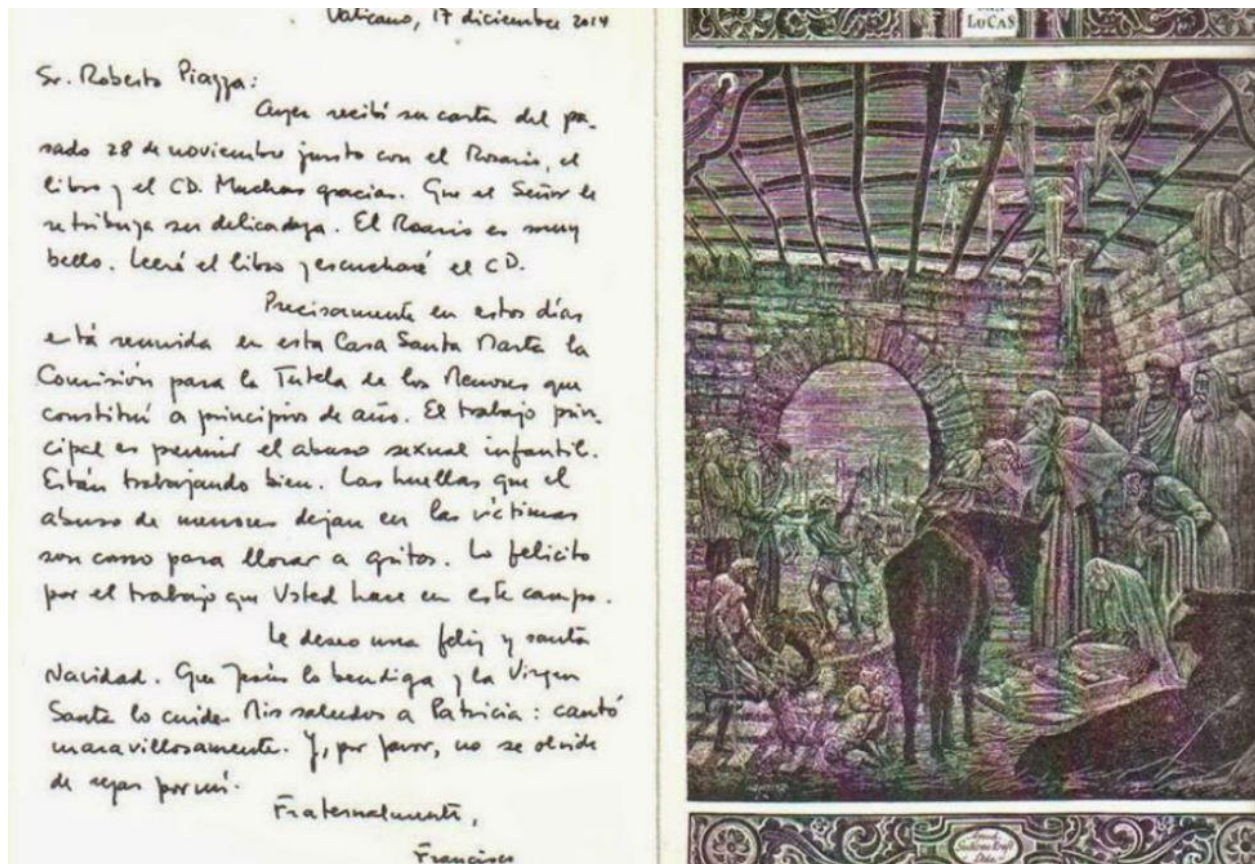 Vaticano, 17 diciembre 2014
Sr. Roberto Piazza:
Ayer recibí su carta del pa-
sado 28 de noviembre junto con el Rosario, el
libro y el CD. Muchas gracias. Que el Señor le
retribuya su delicadeza. El Rosario es muy
bello. Leeré el libro y escucharé el CD.
Precisamente en estos días
está reunida en esta Casa Santa Marta la
Comisión para la Tutela de los Menores que
constituí a principios de año. El trabajo prin-
cipal es prevenir el abuso sexual infantil.
Están trabajando bien. Las huellas que el
abuso de menores dejan en las víctimas
son como para llorar a gritos. Lo felicito
por el trabajo que Usted hace en este campo.
Le deseo una feliz y santa
Navidad. Que Jesús lo bendiga y la Virgen
Santa lo cuide. Mis saludos a Patricia: cantó
maravillosamente. Y, por favor, no se olvide
de rezar por mí.
Fraternalmente,
Francisco
LUCAS